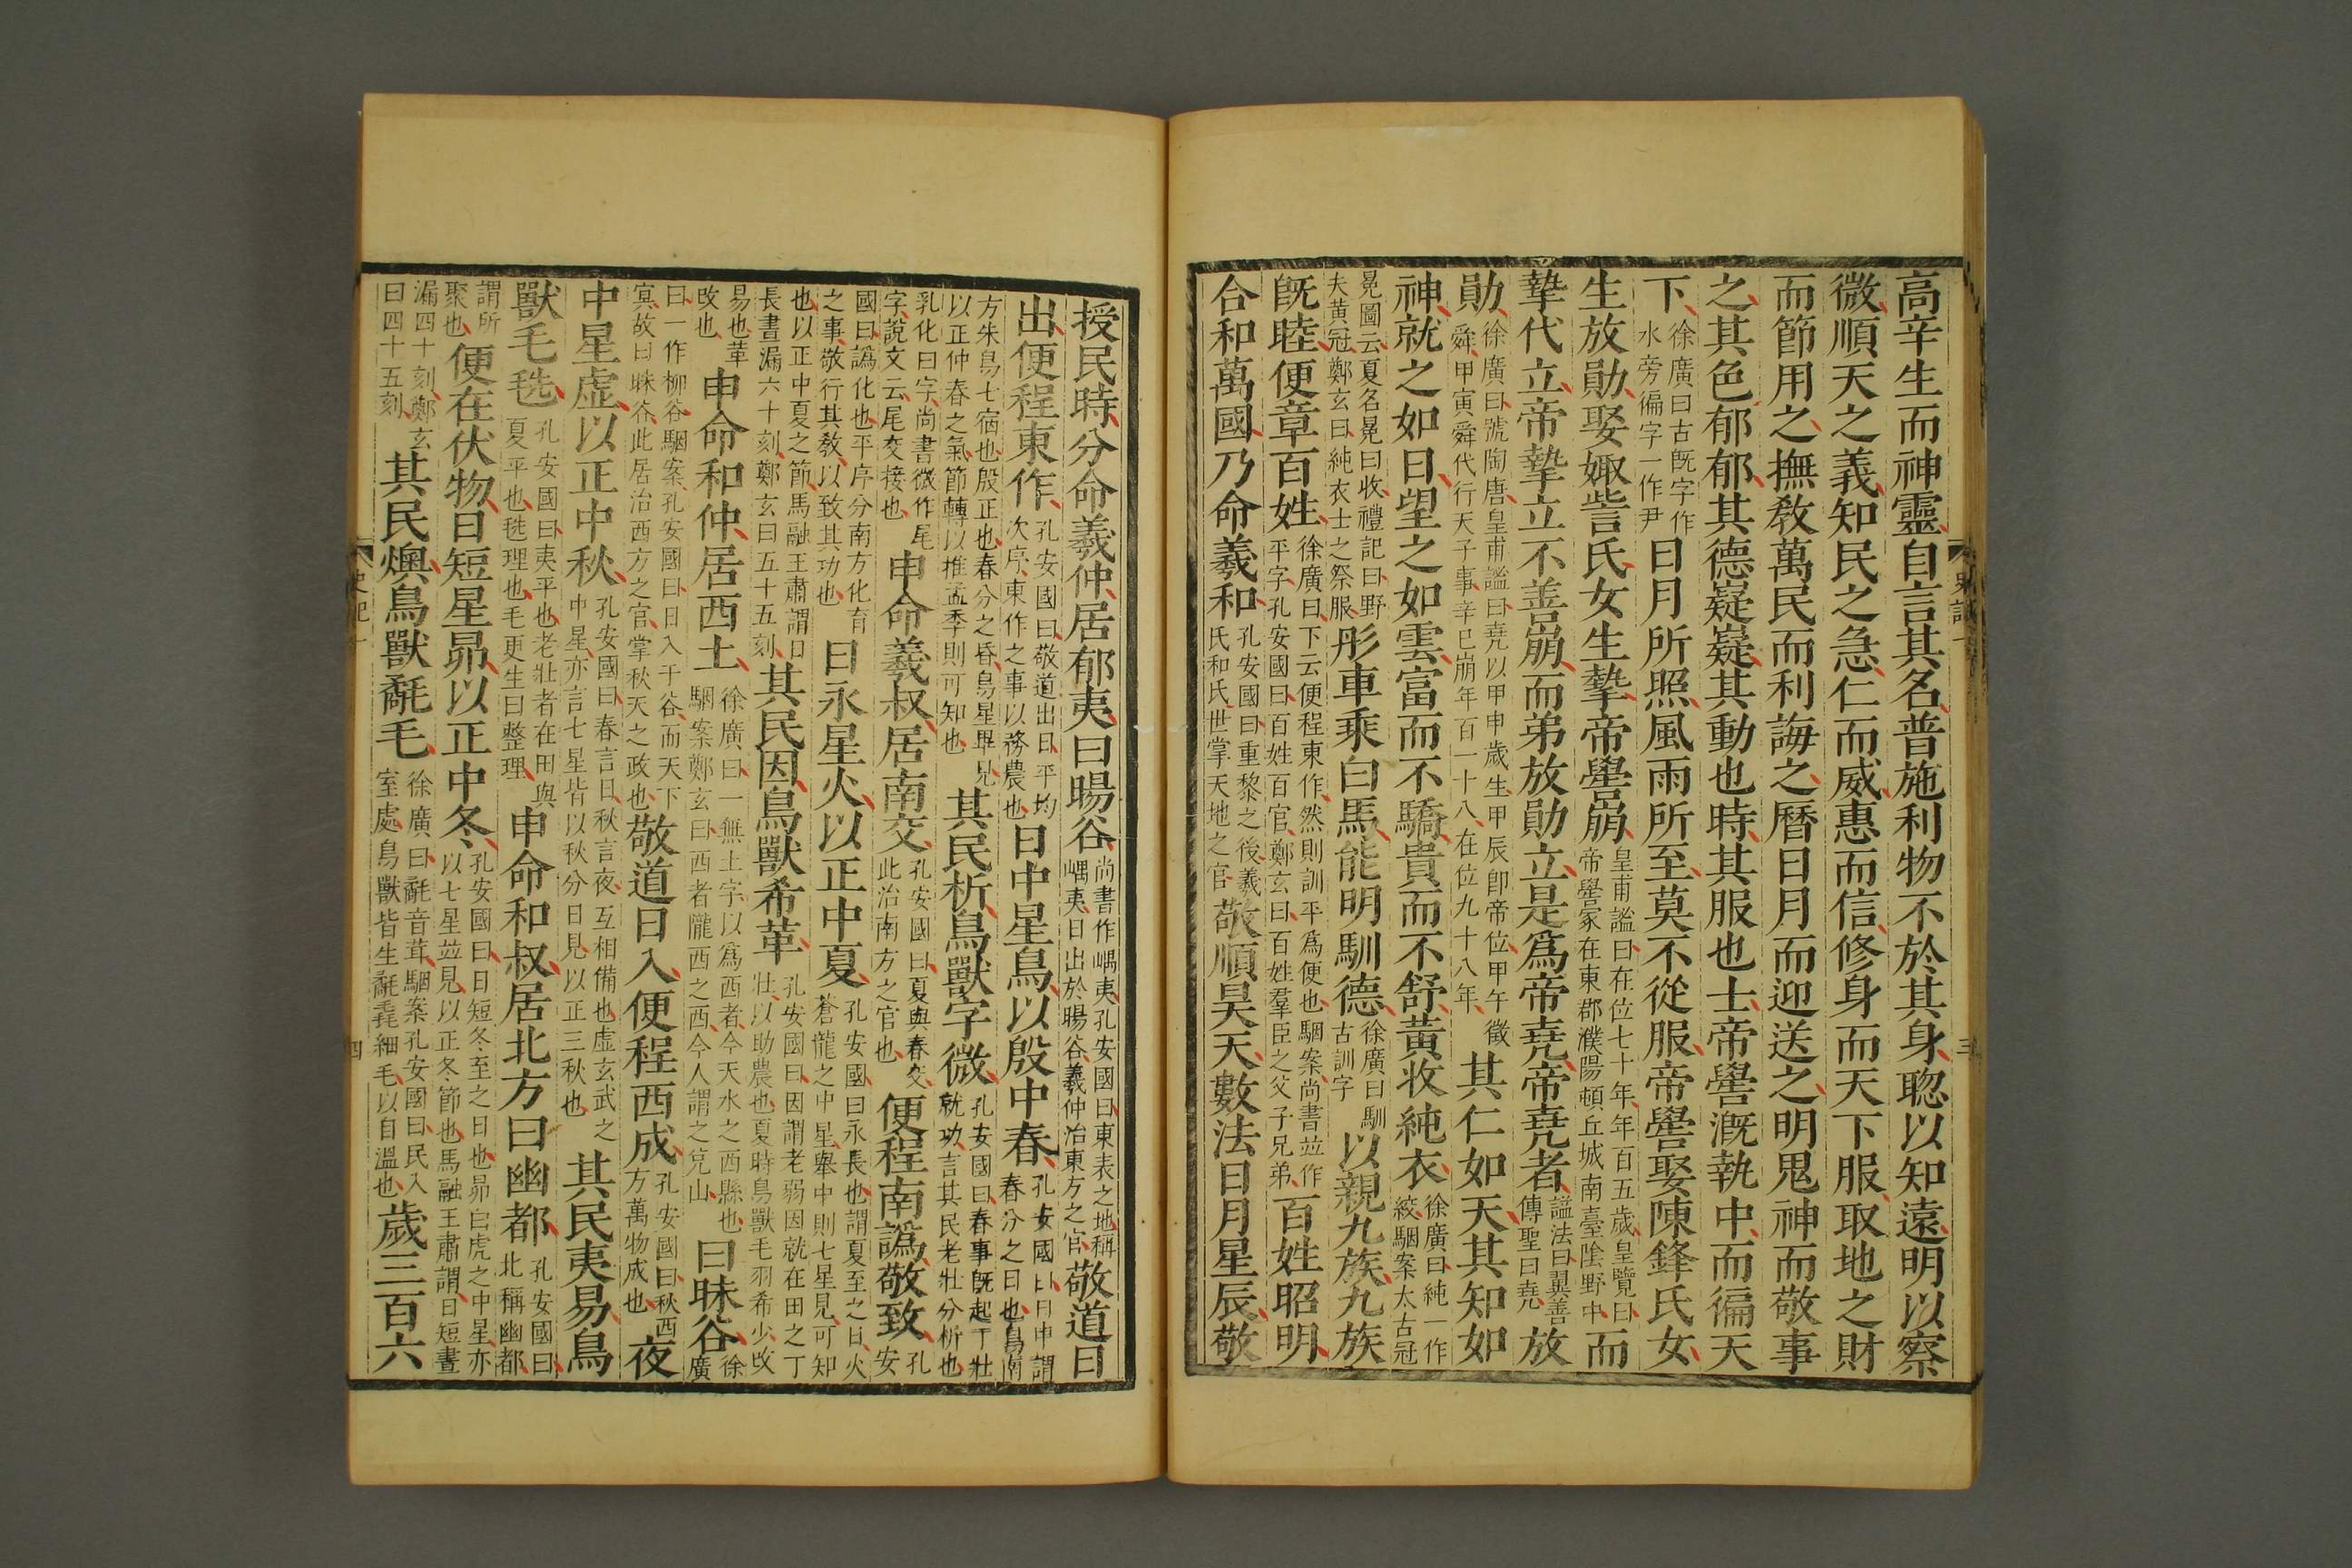 高辛生而神靈自言其名普施利物不於其身聰以知遠明以察
微順天之義知民之急仁而威惠而信修身而天下服取地之財
而節用之撫敎萬民而利誨之曆日月而迎送之明鬼神而敬事
之其色郁郁其德嶷嶷其動也時其服也士帝嚳漑執中而徧天
下徐廣曰古旣字作水旁徧字一作尹日月所照風雨所至莫不從服帝嚳娶陳鋒氏女
生放勛娶娵訾氏女生摯帝嚳崩皇甫謐曰在位七十年年百五歲皇覽曰帝嚳冢在東郡濮陽頓丘城南臺陰野中而
摯代立帝摯立不善崩而弟放勛立是爲帝堯帝堯者諡法曰翼善傳聖曰堯放
勛徐廣曰號陶唐皇甫謐曰堯以甲申歲生甲辰卽帝位甲午徵舜甲寅舜代行天子事辛巳崩年百一十八在位九十八年其仁如天其知如
神就之如日望之如雲富而不驕貴而不舒黃收純衣徐廣曰純一作絞駰案太古冠
冕圖云夏名冕曰收禮記曰野夫黃冠鄭玄曰純衣士之祭服彤車乘白馬能明馴德徐廣曰馴古訓字以親九族九族
旣睦便章百姓徐廣曰下云便程東作然則訓平爲便也駰案尚書並作平字孔安國曰百姓百官鄭玄曰百姓羣臣之父子兄弟百姓昭明
合和萬國乃命羲和孔安國曰重黎之後羲氏和氏世掌天地之官敬順昊天數法日月星辰敬
史記一
三
授民時分命羲仲居郁夷曰暘谷尚書作嵎夷孔安國曰東表之地稱嵎夷日出於暘谷羲仲治東方之官敬道日
出便程東作孔安國曰敬道出日平均次序東作之事以務農也日中星鳥以殷中春孔安國曰日中謂春分之日也鳥南
方朱鳥七宿也殷正也春分之昏鳥星畢見以正仲春之氣節轉以推孟季則可知也其民析鳥獸字微孔安國曰春事旣起丁壯就功言其民老壯分析也
乳化曰字尚書微作尾字說文云尾交接也申命羲叔居南交孔安國曰夏與春交此治南方之官也便程南譌敬致孔安
國曰譌化也平序分南方化育之事敬行其敎以致其功也日永星火以正中夏孔安國曰永長也謂夏至之日火蒼龍之中星舉中則七星見可知
也以正中夏之節馬融王肅謂日長晝漏六十刻鄭玄曰五十五刻其民因鳥獸希革孔安國曰因謂老弱因就在田之丁壯以助農也夏時鳥獸毛羽希少攺
易也革攺也申命和仲居西土徐廣曰一無土字以爲西者今天水之西縣也駰案鄭玄曰西者隴西之西今人謂之兌山曰昧谷徐廣
曰一作柳谷駰案孔安國曰日入于谷而天下冥故曰昧谷此居治西方之官掌秋天之政也敬道日入便程西成孔安國曰秋西方萬物成也夜
中星虛以正中秋孔安國曰春言日秋言夜互相備也虛玄武之中星亦言七星皆以秋分日見以正三秋也其民夷易鳥
獸毛毨孔安國曰夷平也老壯者在田與夏平也毨理也毛更生曰整理申命和叔居北方曰幽都孔安國曰北稱幽都
謂所聚也便在伏物日短星昴以正中冬孔安國曰日短冬至之日也昴白虎之中星亦以七星並見以正冬節也馬融王肅謂日短晝
漏四十刻鄭玄曰四十五刻其民燠鳥獸氄毛徐廣曰氄音茸駰案孔安國曰民入室處鳥獸皆生氄毳細毛以自溫也歲三百六
史記一
四